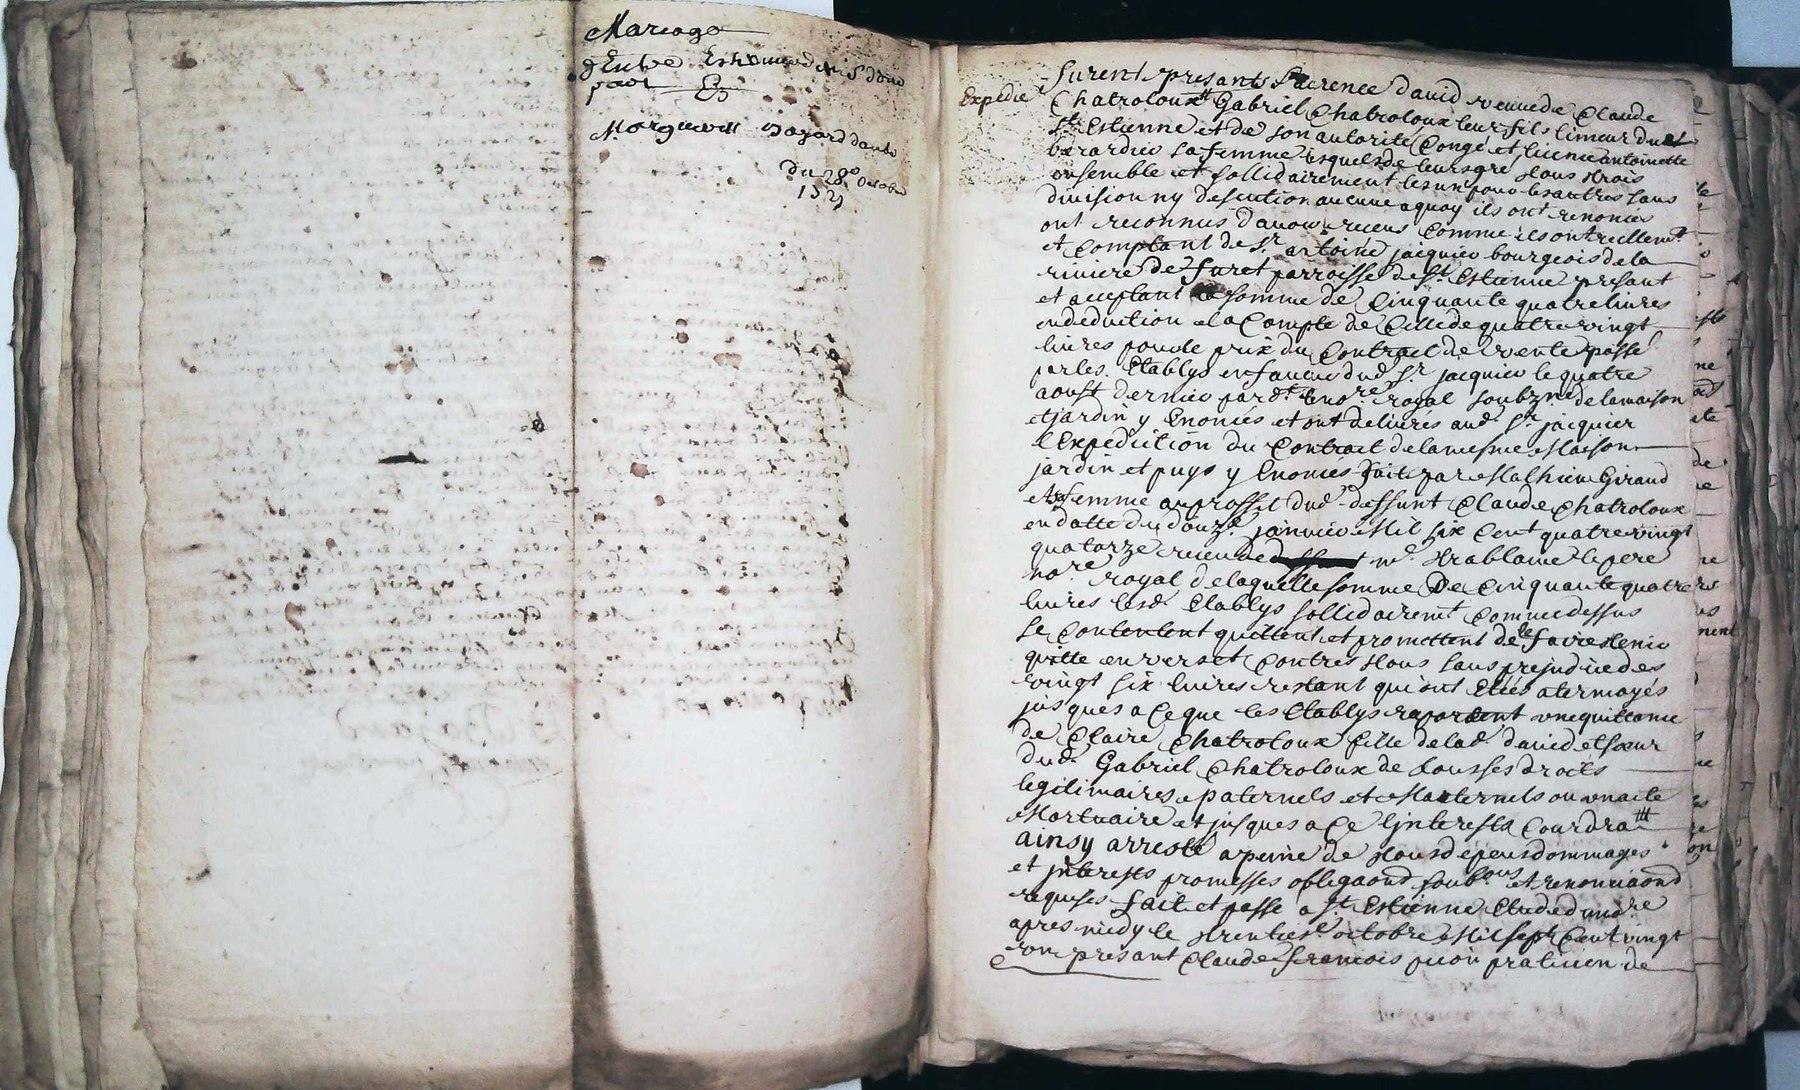 Mariage
d'Entre Estienne denis d'une
part Et
Margueritte bayard d'aute
du 28e octobre
1721
Expedié
furent presants Laurence david veuve de Claude
Chatroloux Gabriel Chatroloux leur fils limeur dud
St Estienne et de son autorité Congé et licence antoinette
berardier sa femme lesquels de leurs gre tous trois
ensemble et sollidairement les un pour les autres sans
division ny descution aucune a quoy ils ont renoncés
ont reconnus d'avoir receus Comme ils ont reellemt
et Comptant de Sr antoine jacquier bourgeois de la
riviere de furet parroisse de St Estienne presant
et acceptant la somme de Cinquante quatre livres
en deduction et a Compte de Celle de quatre vingt
livres pour le prix du Contract de vente passé
par les Etablys en faveur dud Sr jacquier le quatre
aoust dernier par dt le nore royal soubzné de la maison
et jardin y Enoncés et ont delivrés aud Sr jacquier
l'Expedition du Contract de la mesme Maison
jardin et puys y Enoncés fait par Mathieu Giraud
et sa femme au proffit dud deffunt Claude Chatroloux
en datte du douze janvier Mil six Cent quatre vingt
quatorze receu de me trablaine le pere
nore royal de laquelle somme De cinquante quatre
livres lesd Etablys sollidairemt comme dessus
se Contentent quittent et promettent de le faire tenir
quitte envers et Contres tous sans prejudice des
vingt six livres restant qui ont Etés atermoyés
jusques a Ce que les Etablys raportent une quittance
de Claire Chatroloux fille de lad david et soeur
dud Gabriel Chatroloux de tous ses droits
legitimaires paternels et Maternels ou un acte
Mortuaire et jusques a Ce l'jnterests Courdra
ainsy arresté a peine de tous depens dommages
et jnterests promesses obligaond soubons et renonciaond
requises fait et passé a St Estienne Etude du nore
apres midy le trentiese octobre Mil sept Cent vingt
un presant Claude francois picon praticien de